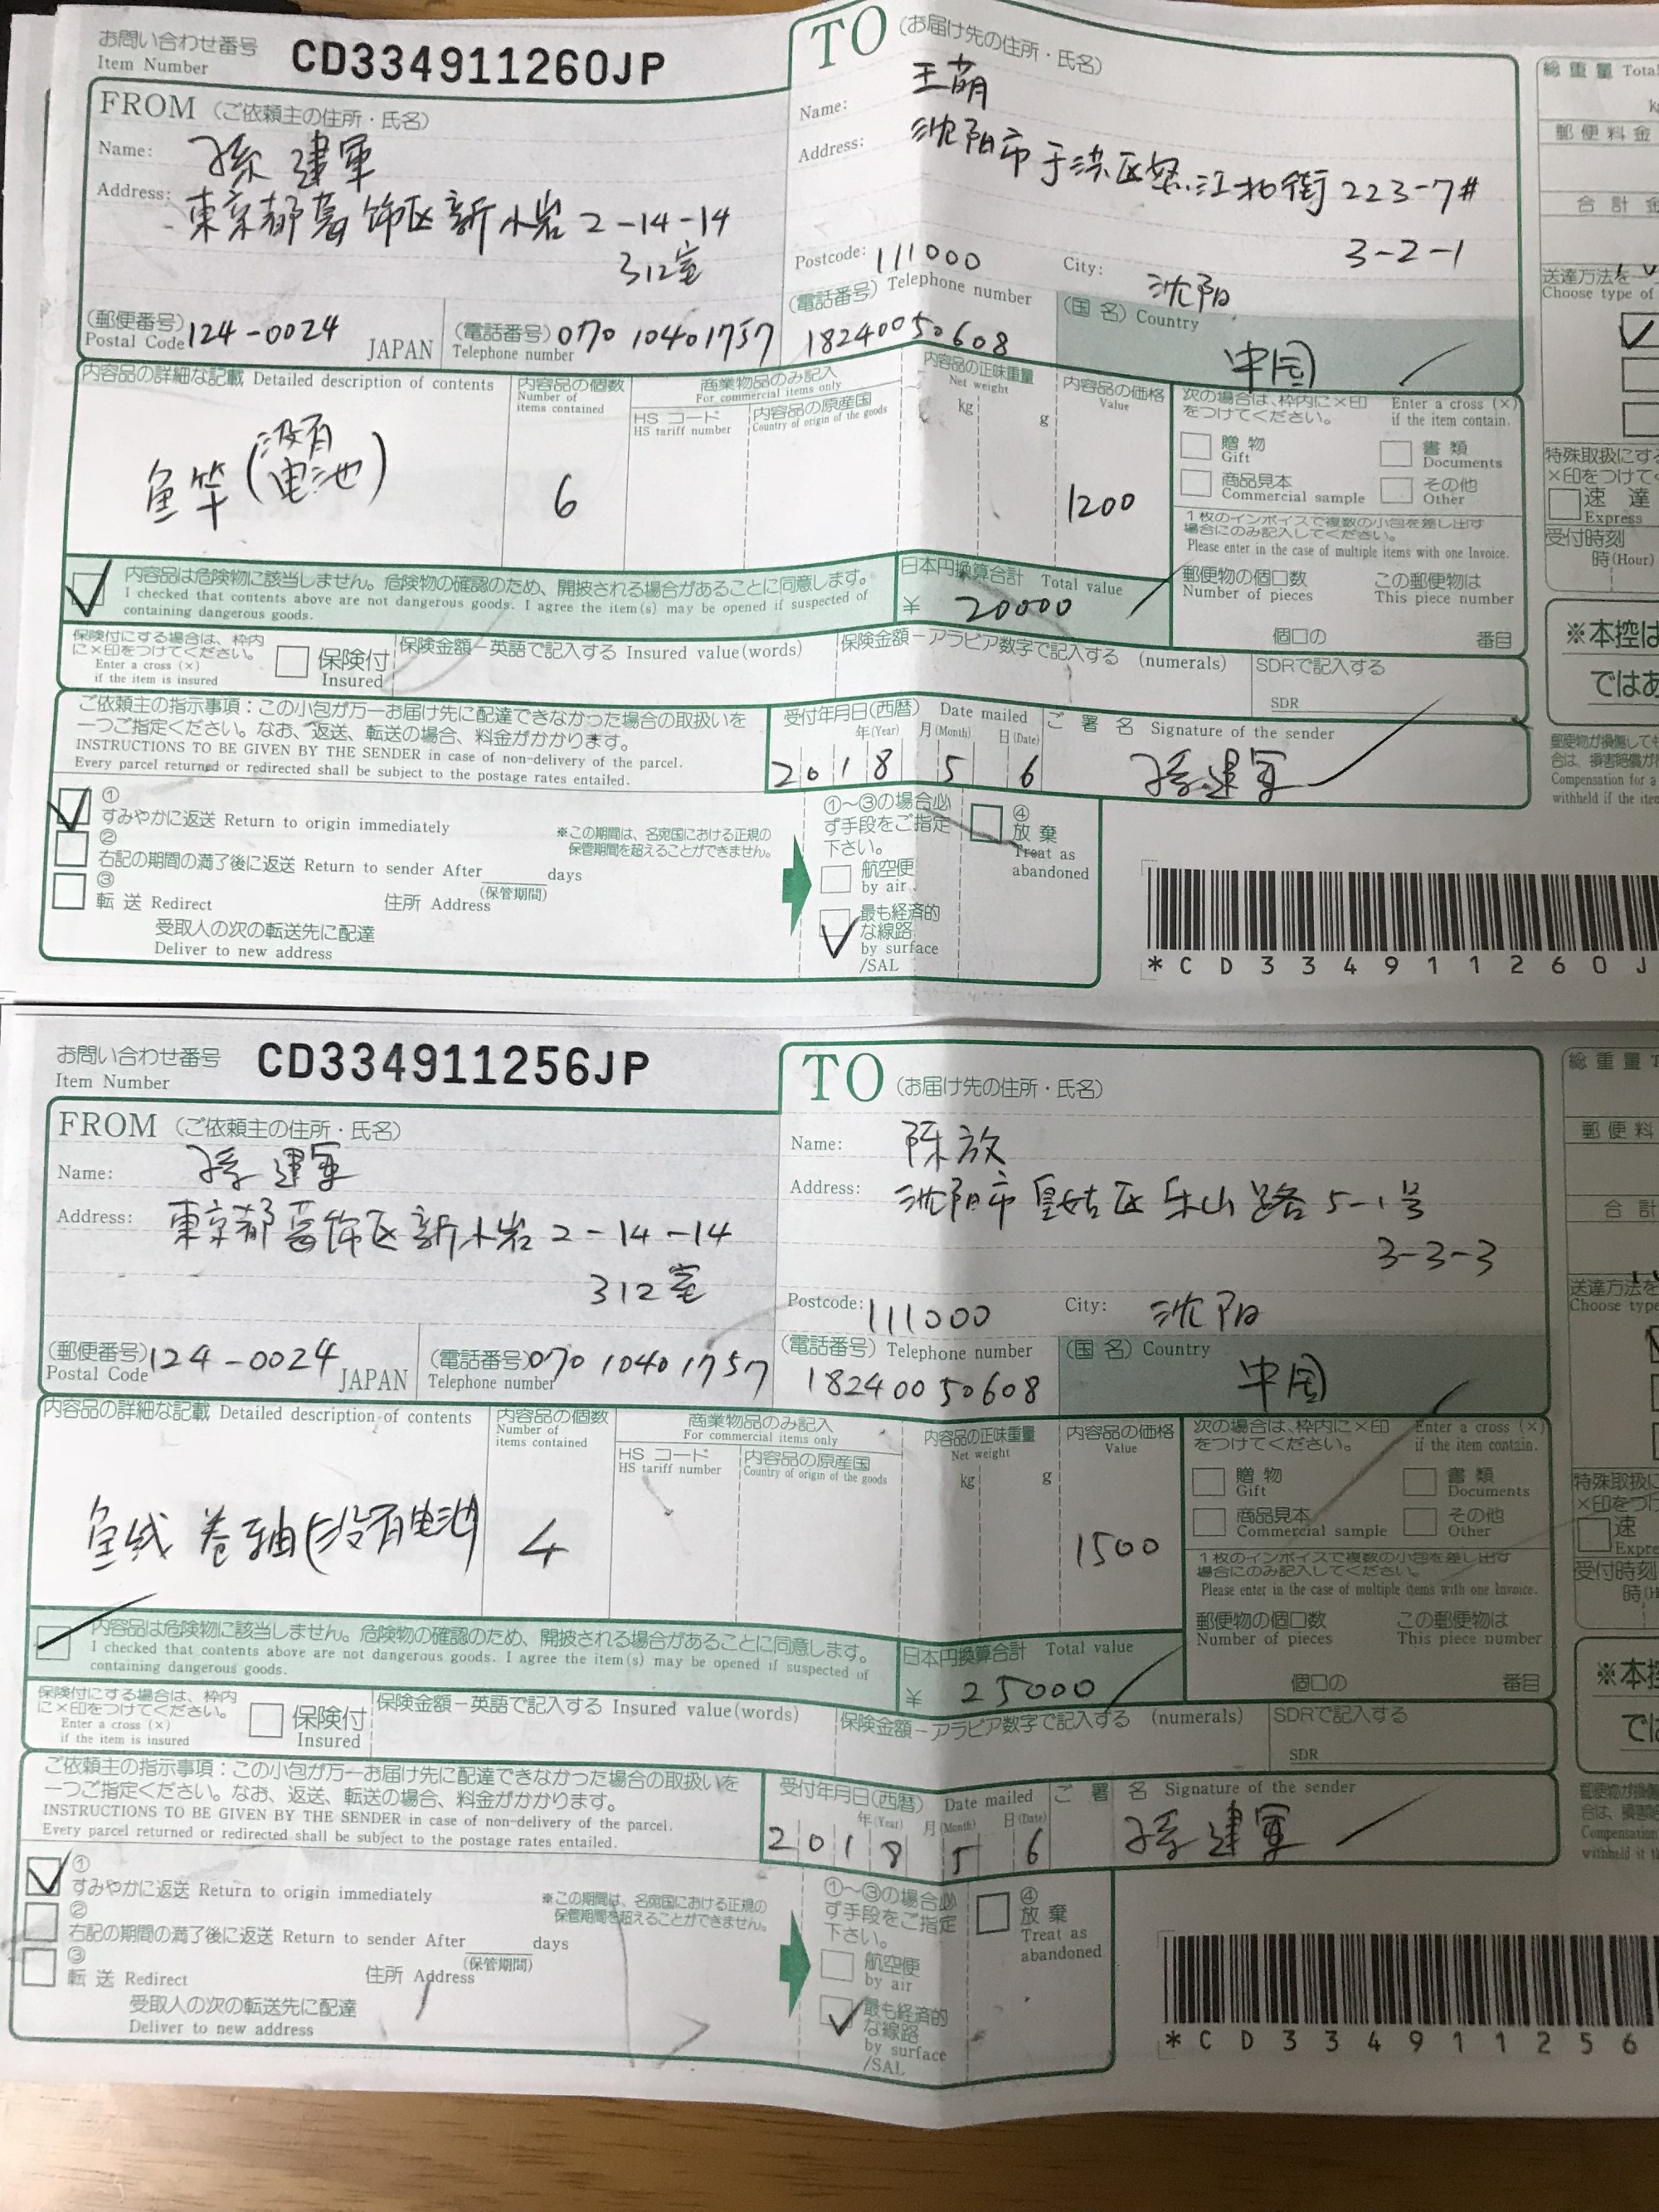 お問い合わせ番号
Item Number
CD334911260JP
FROM (ご依頼主の住所・氏名)
Name: 孫建軍
Address: 東京都葛飾区新小岩2-14-14
312室
(郵便番号)
Postal Code 124-0024 JAPAN
(電話番号) 070 1040 1757
Telephone number
TO (お届け先の住所・氏名)
Name: 王萌
Address: 沈阳市于洪区怒江北街223-7#
3-2-1
Postcode: 111000 City: 沈阳
(電話番号) Telephone number
18240050608
(国名) Country
中国
内容品の詳細な記載 Detailed description of contents
鱼竿(没有电池)
内容品の個数
Number of
items contained
6
商業物品のみ記入
For commercial items only
HS コード
HS tariff number
内容品の原産国
Country of origin of the goods
内容品の正味重量
Net weight
kg g
内容品の価格
Value
1200
次の場合は、枠内に×印
をつけてください。
Enter a cross (×)
if the item contain.
贈物
Gift
書類
Documents
商品見本
Commercial sample
その他
Other
1枚のインボイスで複数の小包を差し出す
場合にのみ記入してください。
Please enter in the case of multiple items with one Invoice.
郵便物の個口数
Number of pieces
この郵便物は
This piece number
個口の 番目
内容品は危険物に該当しません。危険物の確認のため、開披される場合があることに同意します。
I checked that contents above are not dangerous goods. I agree the item(s) may be opened if suspected of
containing dangerous goods.
日本円換算合計 Total value
¥ 20000
保険付にする場合は、枠内
に×印をつけてください。
Enter a cross (×)
if the item is insured
保険付
Insured
保険金額－英語で記入する Insured value(words)
保険金額－アラビア数字で記入する (numerals)
SDRで記入する
SDR
ご依頼主の指示事項：この小包が万一お届け先に配達できなかった場合の取扱いを
一つご指定ください。なお、返送、転送の場合、料金がかかります。
INSTRUCTIONS TO BE GIVEN BY THE SENDER in case of non-delivery of the parcel.
Every parcel returned or redirected shall be subject to the postage rates entailed.
受付年月日(西暦) Date mailed
年(Year) 月(Month) 日(Date)
2018 5 6
ご署名 Signature of the sender
孫建軍
①
すみやかに返送 Return to origin immediately
②
右記の期間の満了後に返送 Return to sender After days
(保管期間)
※この期間は、名宛国における正規の
保管期間を超えることができません。
③
転送 Redirect 住所 Address
受取人の次の転送先に配達
Deliver to new address
①～③の場合必
ず手段をご指定
下さい。
航空便
by air
最も経済的
な線路
by surface
/SAL
④
放棄
Treat as
abandoned
*CD334911260J
総重量 Total
郵便料金
合計金
送達方法を
Choose type of
特殊取扱にする
×印をつけて
速達
Express
受付時刻
時(Hour)
※本控は
ではあ
郵便物が損傷しても
合は、損害賠償が
Compensation for a
withheld if the item
お問い合わせ番号
Item Number
CD334911256JP
FROM (ご依頼主の住所・氏名)
Name: 孫建軍
Address: 東京都葛飾区新小岩2-14-14
312室
(郵便番号)
Postal Code 124-0024 JAPAN
(電話番号) 070 1040 1757
Telephone number
TO (お届け先の住所・氏名)
Name: 陈放
Address: 沈阳市皇姑区乐山路5-1号
3-3-3
Postcode: 111000 City: 沈阳
(電話番号) Telephone number
18240050608
(国名) Country
中国
内容品の詳細な記載 Detailed description of contents
鱼线卷轴(没有电池)
内容品の個数
Number of
items contained
4
商業物品のみ記入
For commercial items only
HS コード
HS tariff number
内容品の原産国
Country of origin of the goods
内容品の正味重量
Net weight
kg g
内容品の価格
Value
1500
次の場合は、枠内に×印
をつけてください。
Enter a cross (×)
if the item contain.
贈物
Gift
書類
Documents
商品見本
Commercial sample
その他
Other
1枚のインボイスで複数の小包を差し出す
場合にのみ記入してください。
Please enter in the case of multiple items with one Invoice.
郵便物の個口数
Number of pieces
この郵便物は
This piece number
個口の 番目
内容品は危険物に該当しません。危険物の確認のため、開披される場合があることに同意します。
I checked that contents above are not dangerous goods. I agree the item(s) may be opened if suspected of
containing dangerous goods.
日本円換算合計 Total value
¥ 25000
保険付にする場合は、枠内
に×印をつけてください。
Enter a cross (×)
if the item is insured
保険付
Insured
保険金額－英語で記入する Insured value(words)
保険金額－アラビア数字で記入する (numerals)
SDRで記入する
SDR
ご依頼主の指示事項：この小包が万一お届け先に配達できなかった場合の取扱いを
一つご指定ください。なお、返送、転送の場合、料金がかかります。
INSTRUCTIONS TO BE GIVEN BY THE SENDER in case of non-delivery of the parcel.
Every parcel returned or redirected shall be subject to the postage rates entailed.
受付年月日(西暦) Date mailed
年(Year) 月(Month) 日(Date)
2018 5 6
ご署名 Signature of the sender
孫建軍
①
すみやかに返送 Return to origin immediately
②
右記の期間の満了後に返送 Return to sender After days
(保管期間)
※この期間は、名宛国における正規の
保管期間を超えることができません。
③
転送 Redirect 住所 Address
受取人の次の転送先に配達
Deliver to new address
①～③の場合必
ず手段をご指定
下さい。
航空便
by air
最も経済的
な線路
by surface
/SAL
④
放棄
Treat as
abandoned
*CD334911256
総重量
郵便料
合計
送達方法を
Choose type
特殊取扱に
×印をつけ
速
Expre
受付時刻
時(H
※本控
では
郵便物が損傷
合は、損害
Compensation
withheld if th